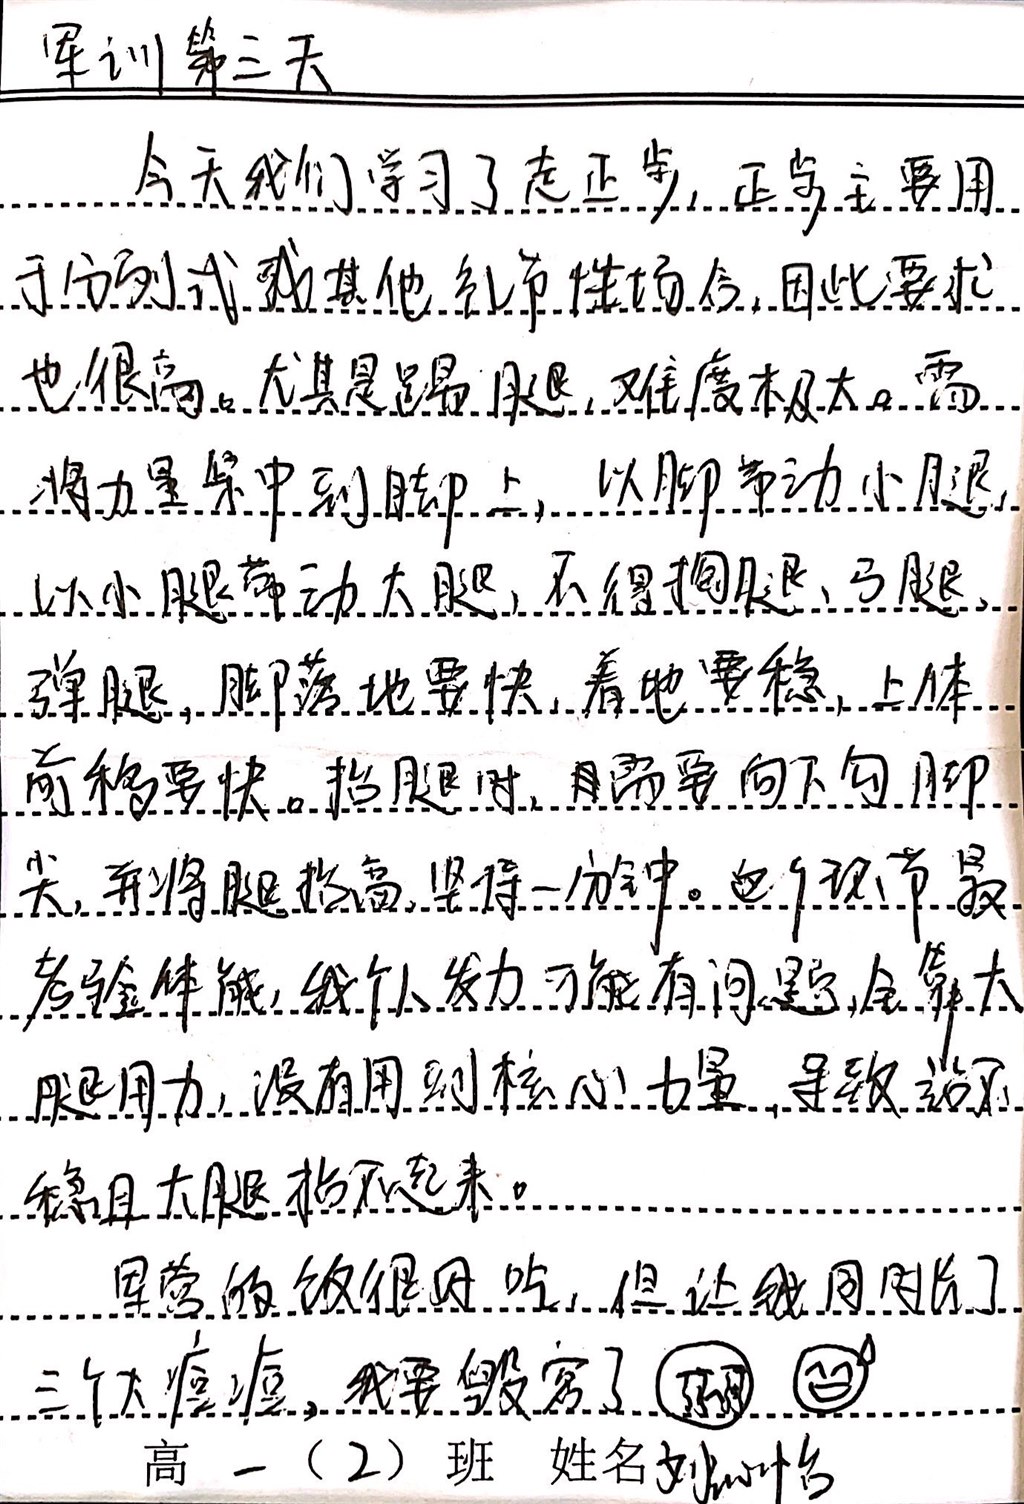 军训第三天
今天我们学习了走正步，正步主要用
于分列式或其他礼节性场合，因此要求
也很高。尤其是踢腿，难度极大。需
将力量集中到脚上，以脚带动小腿，
以小腿带动大腿，不得掏腿、弓腿、
弹腿，脚落地要快，着地要稳，上体
前移要快。抬腿时，需要向下勾脚
尖，并将腿抬高，坚持一分钟。这个环节最
考验体能，我个人发力可能有问题，全靠大
腿用力，没有用到核心力量，导致站不
稳且大腿抬不起来。
军营的饭很好吃，但让我同时长了
三个大痘痘，我要毁容了
高一（2）班 姓名刘